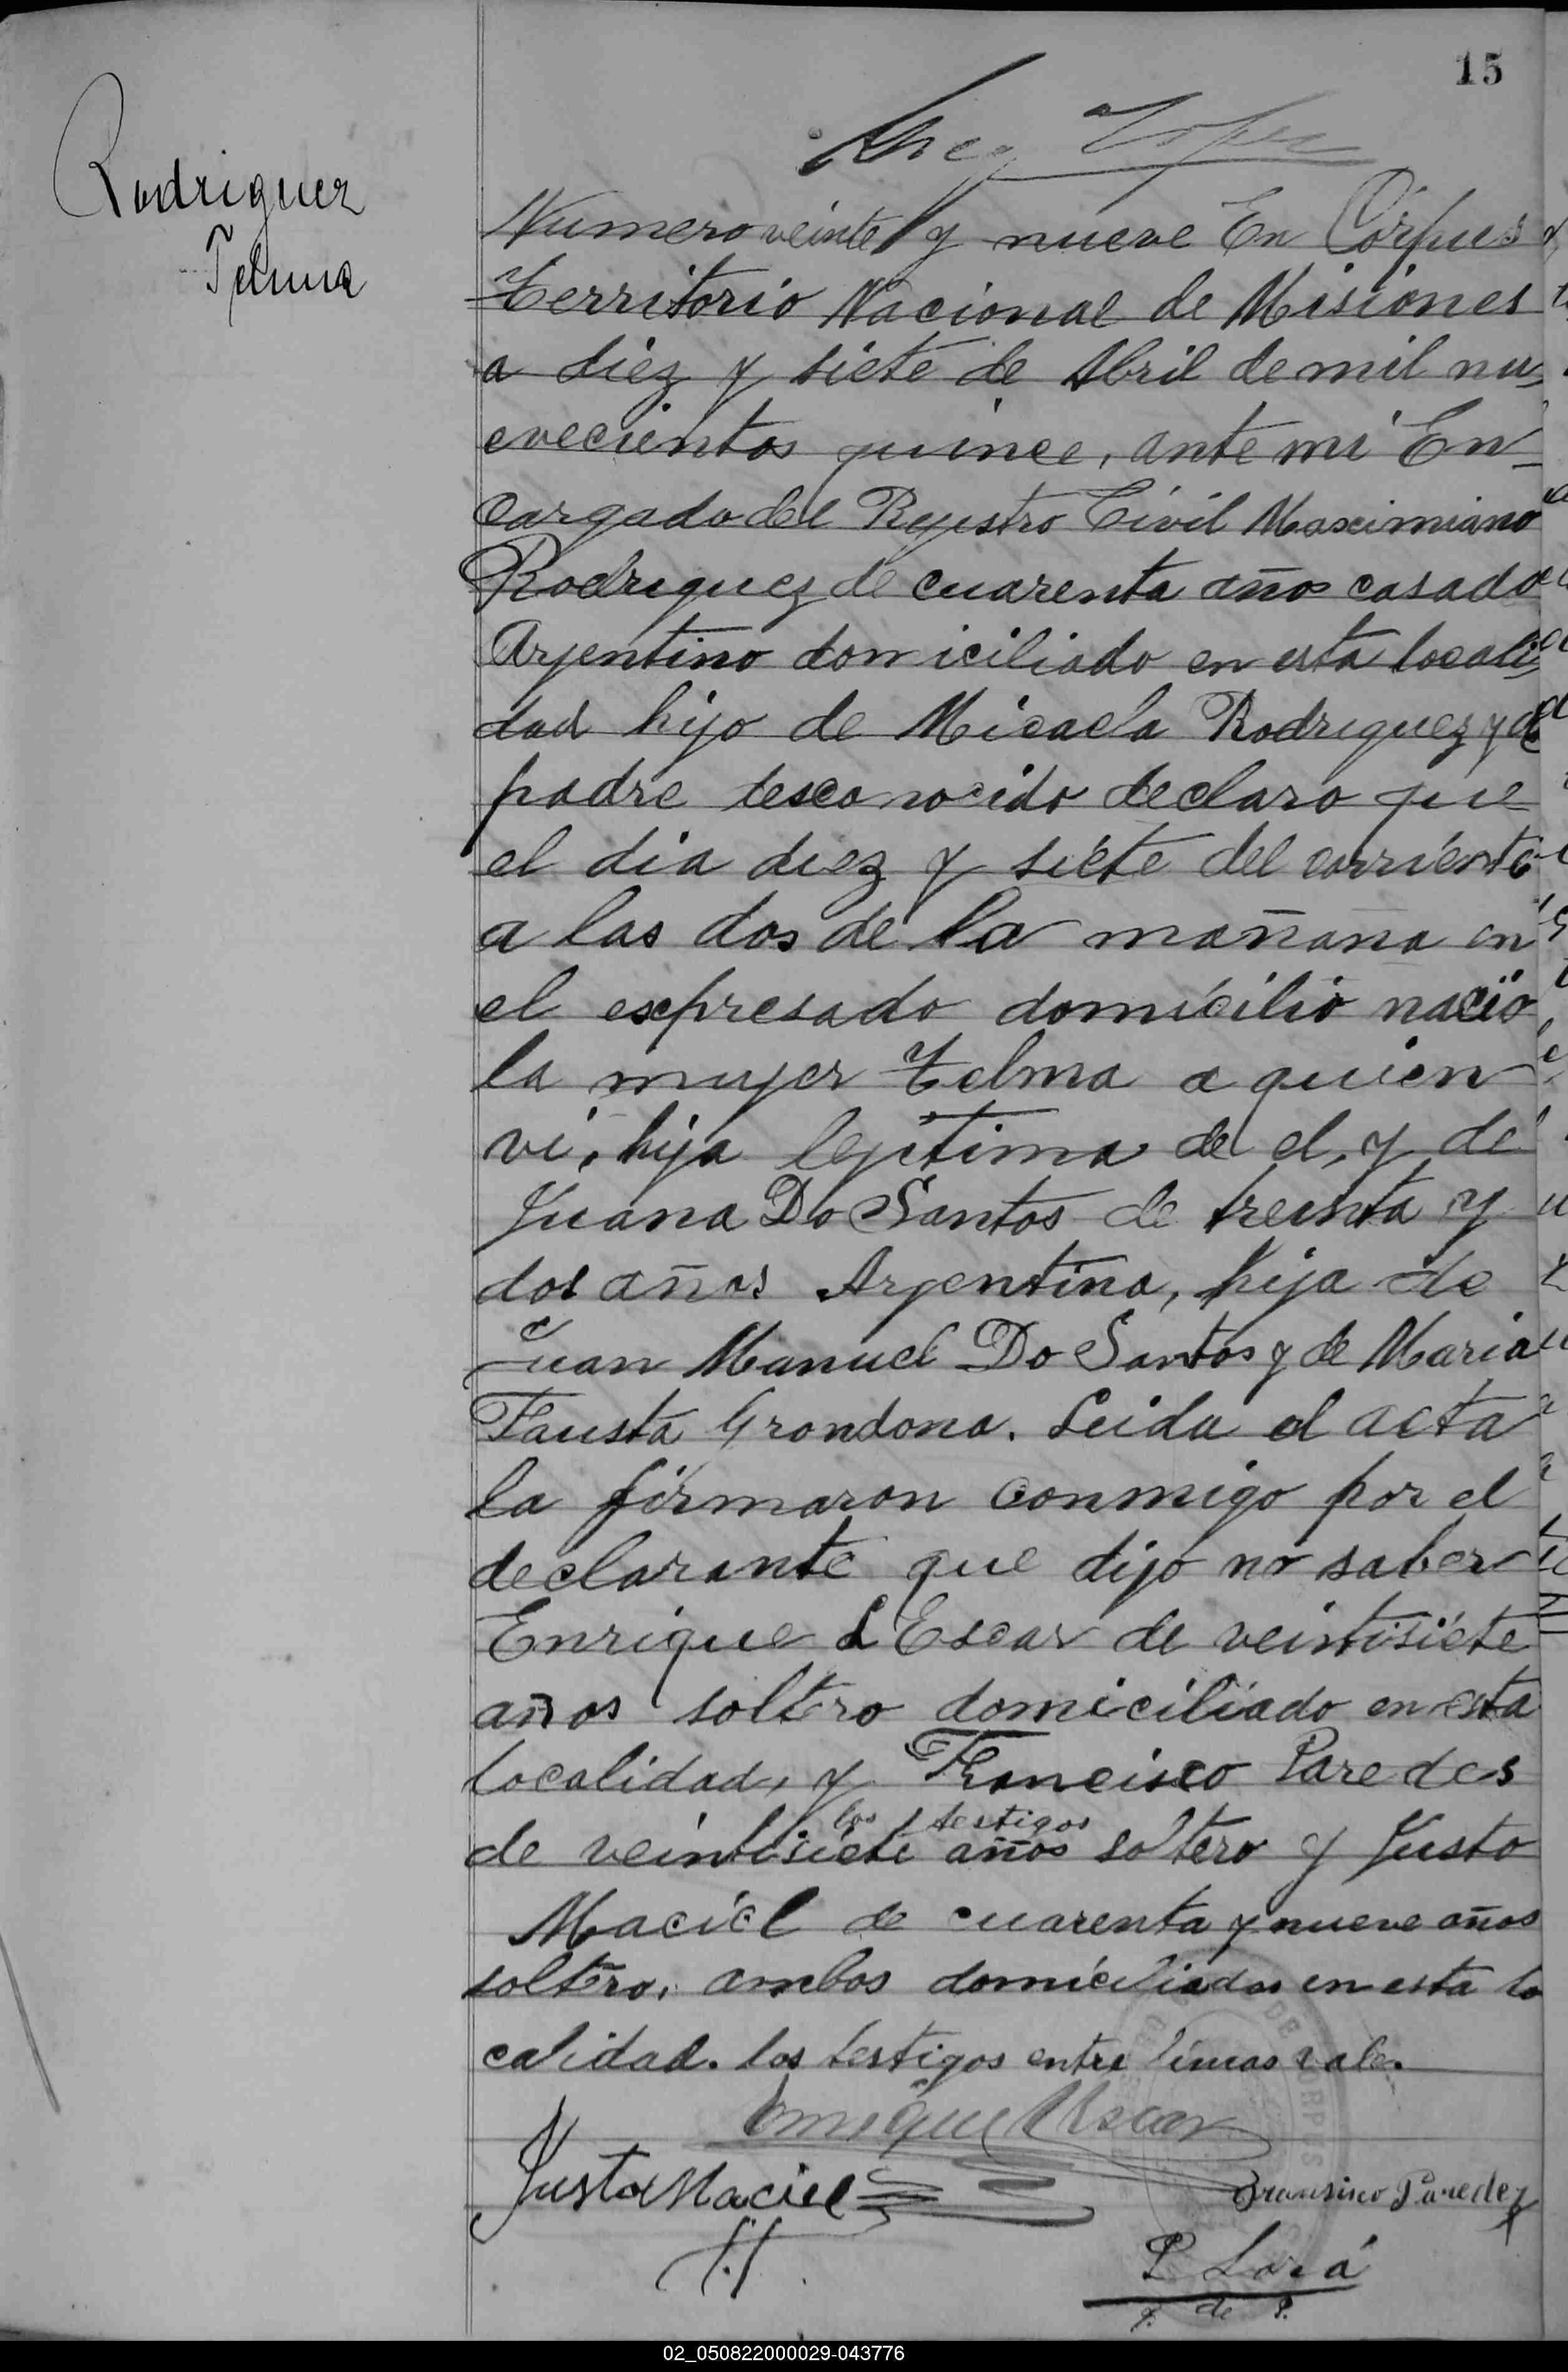 15
Rodriguez
Telma
Numero veinte y nueve En Córpus
Territorio Nacional de Misiones
a diez y siete de Abril de mil nu,
evecientos quince, ante mi En_
cargado del Rejistro Civil Maximiano
Rodriguez de cuarenta años casado
Arjentino domiciliado en esta locali,
dad hijo de Micaela Rodriguez y de
padre desconocido declaro que
el dia diez y siete del corriente
a las dos de la mañana en
el expresado domicilio nació
la mujer Telma a quien
vi, hija lejitima de el, y de
Juana Do Santos de treinta y
dos años Arjentina, hija de
Juan Manuel Do Santos y de Maria
Fausta Grondona. Leida el acta
la firmaron conmigo por el
declarante que dijo no saber
Enrique L Escar de veintisiete
años soltero domiciliado en esta
localidad, y Francisco Paredes
los testigos
de veintisiete años soltero y Justo
Maciel de cuarenta y nueve años
soltero, ambos domiciliados en esta lo
calidad. los testigos entre lineas vale.
Enrique L Escar
Justo Maciel
Fransisco Paredez
P Lorá
J. de P.
02_050822000029-043776